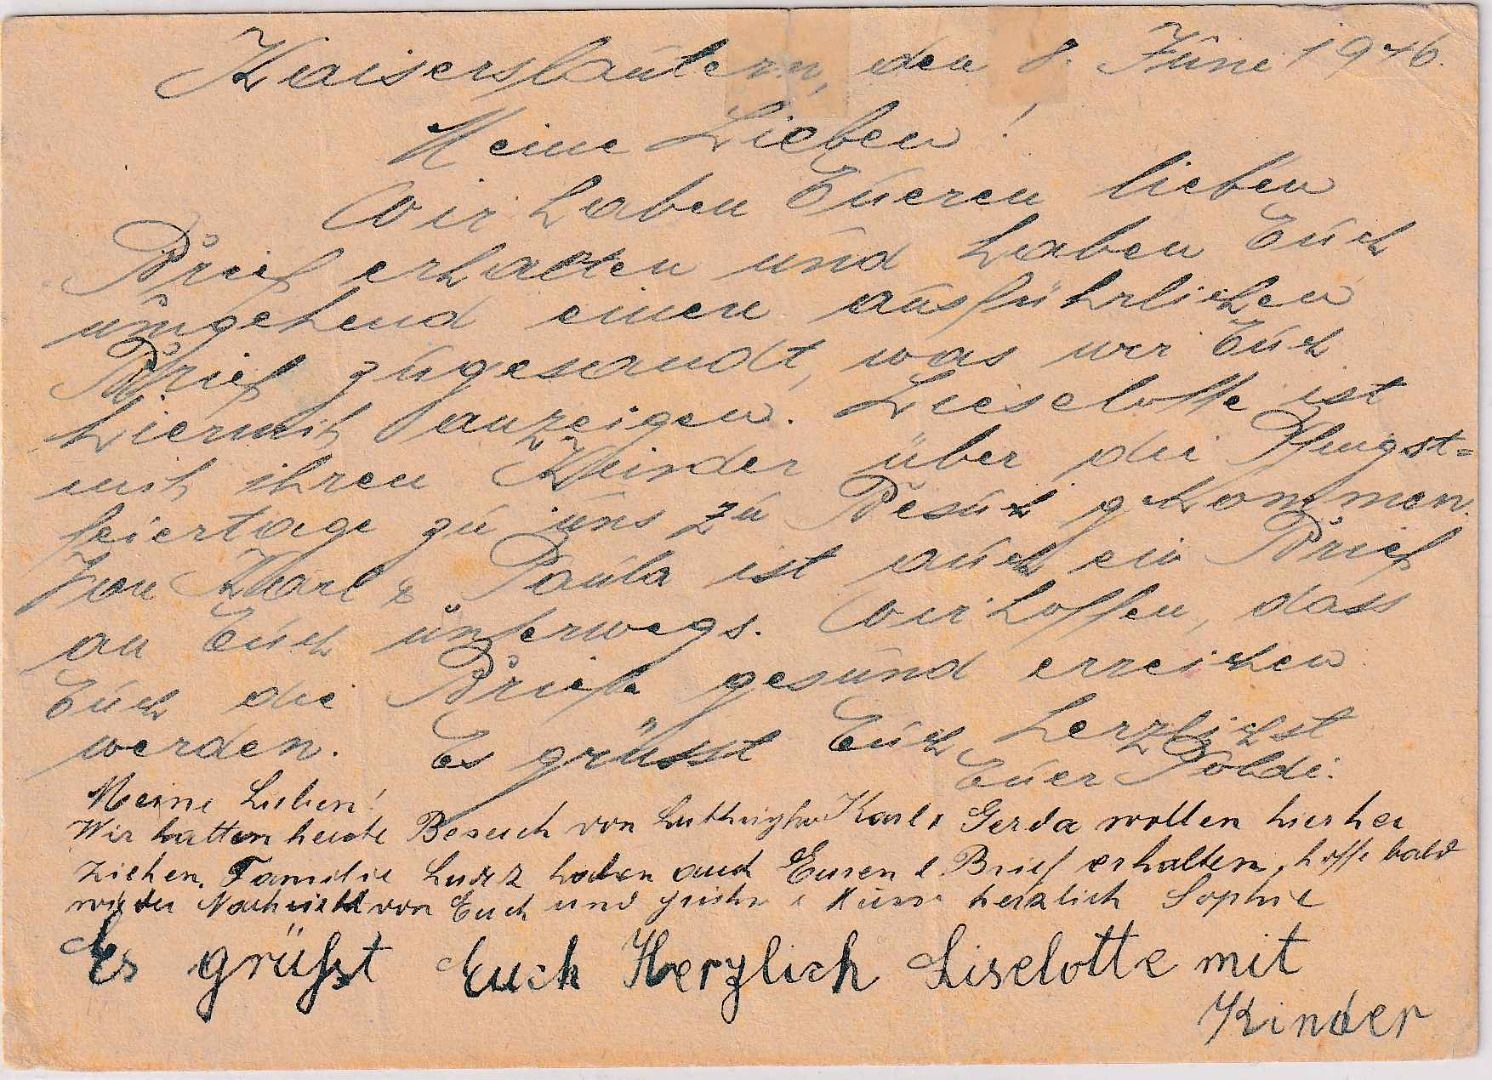 Kaiserslautern, den 8. Juni 1946.
Meine Lieben!
Wir haben Eueren lieben
Brief erhalten und haben Euch
umgehend einen ausführlichen
Brief zugesandt, was wir Euch
hiermit anzeigen. Lieselotte ist
mit ihren Kinder über die Pfingst=
feiertage zu uns zu Besuch gekommen.
Von Karl & Paula ist auch ein Brief
an Euch unterwegs. Wir hoffen, dass
Euch die Briefe gesund erreichen
werden. Es grüsst Euch herzlichst
Euer Poldi.
Meine Lieben!
Wir hatten heute Besuch von Karl Gerda wollen hierher
ziehen. Familie haben auch Euren l Brief erhalten, hoffe bald
wieder Nachricht von Euch und herzlich Sophie
Es grüßt Euch Herzlich Liselotte mit
Kinder